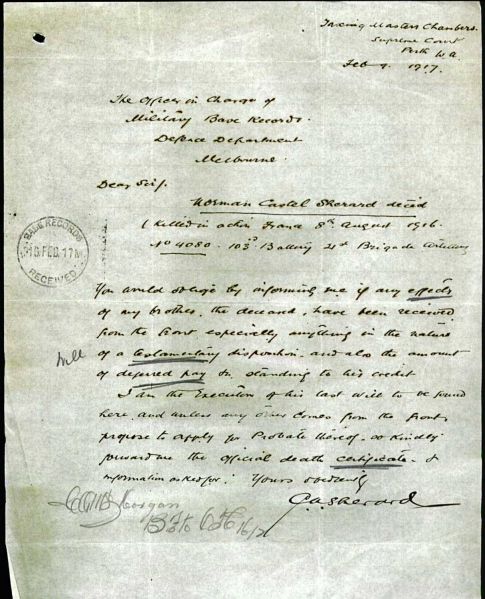 Taxing Masters Chambers.
Supreme Court
Perth W.A.
Feb 9. 1917.
The Officer in Charge of
Military Base Records.
Defence Department
Melbourne.
Dear Sir,
Norman Castel Sherard decd
(Killed in action France 8th August 1916.
No 4080 - 103rd Battery 21st Brigade Artillery
BASE RECORDS
16 FEB. 17
RECEIVED
You would oblige by informing me if any effects
of my brother, the deceased, have been received
from the front especially anything in the nature
of a testamentary disposition. and also the amount
of deferred pay &c standing to his credit
I am the Executor of his last will to be found
here and unless any other comes from the front
propose to apply for Probate thereof. so kindly
forward me the official death certificate. &
information asked for. Yours obediently
C A Sherard
Morgan
16/2